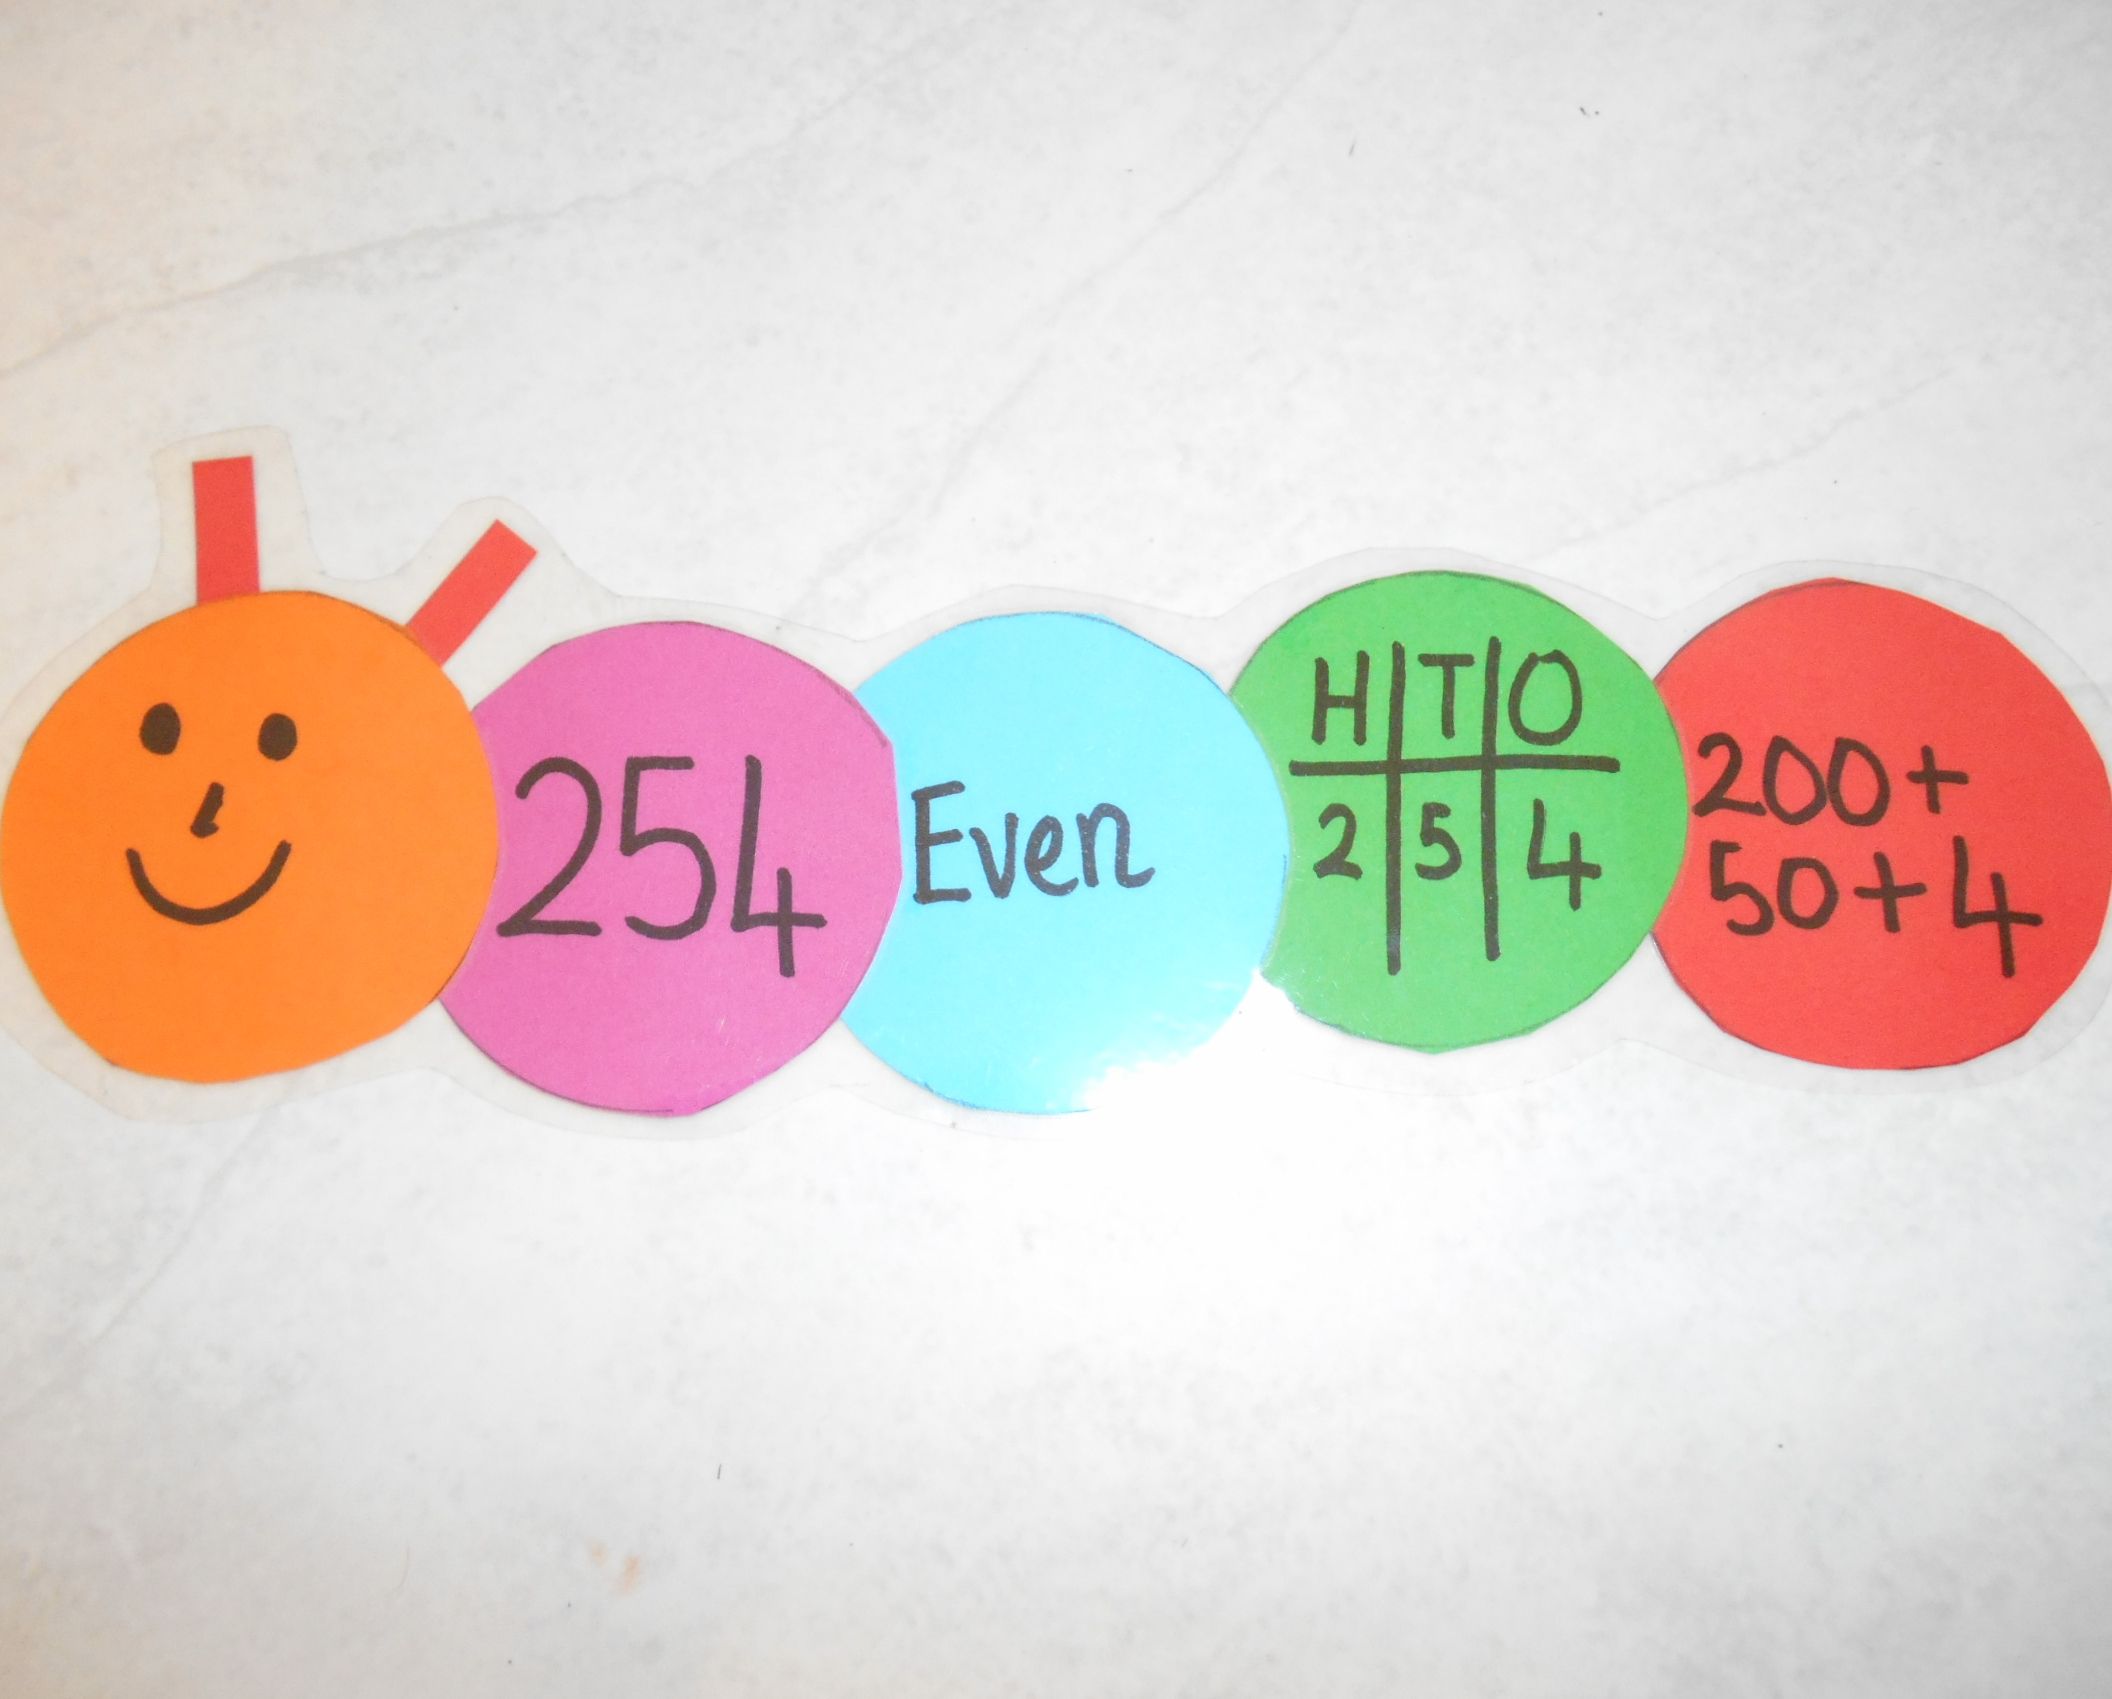 254
Even
H T O
2 5 4
200+
50+4